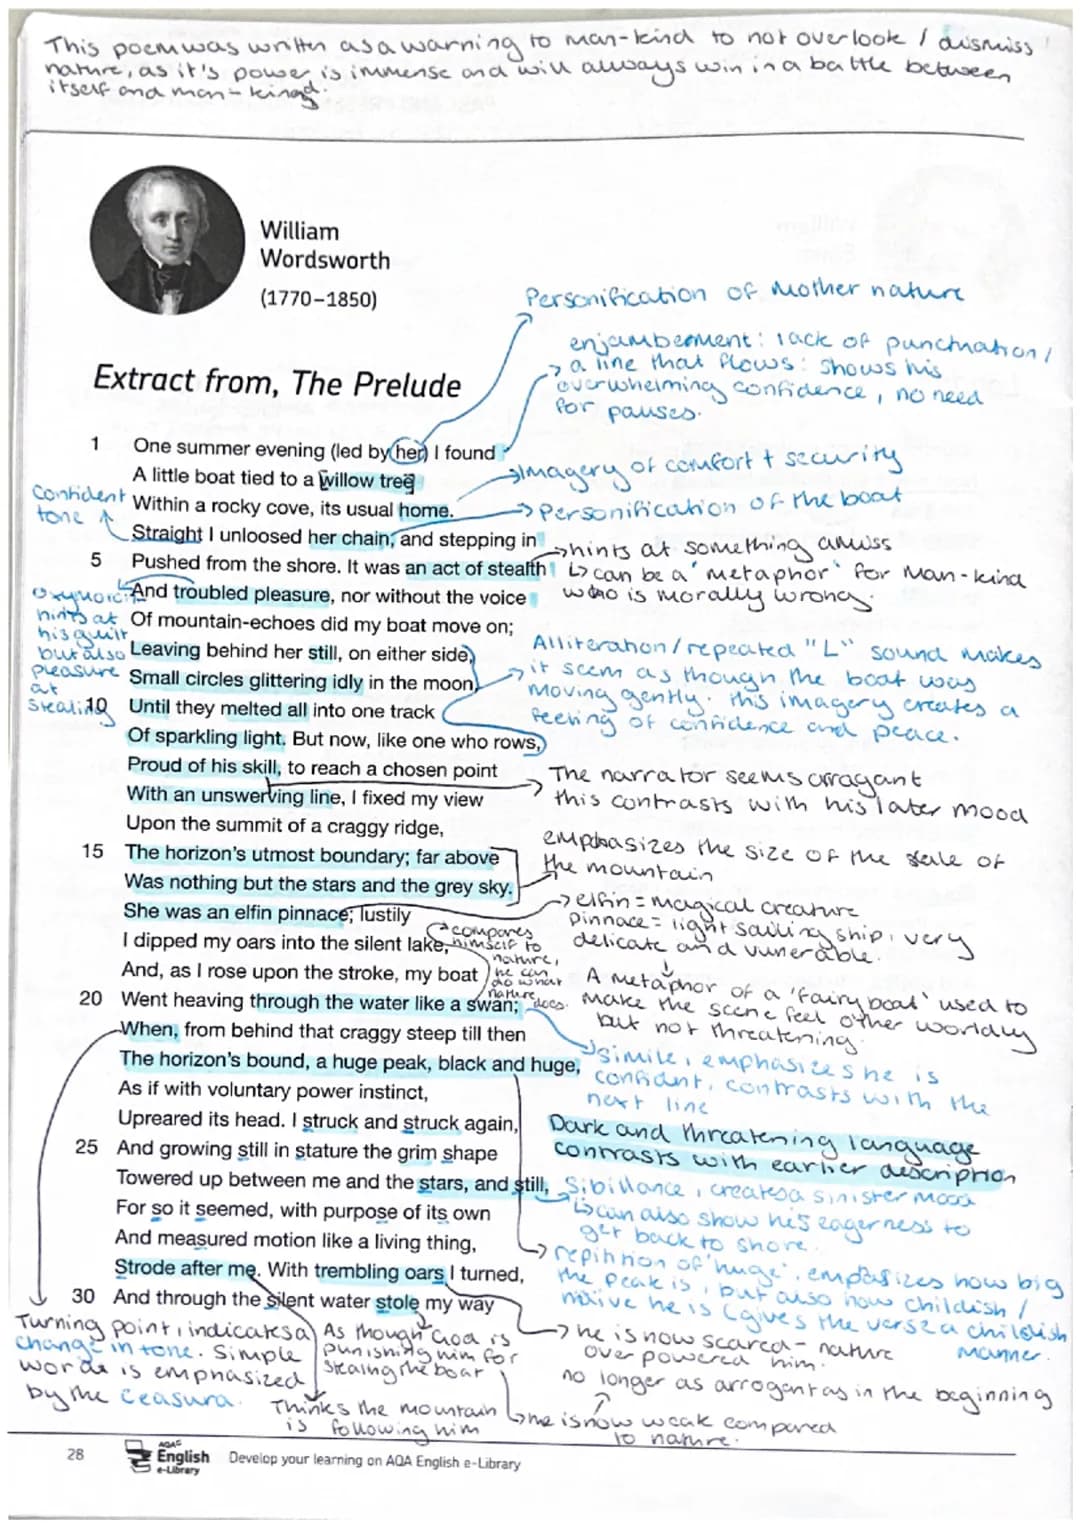 This poem was written as a warning to man-kind to not overlook / dismiss
nature, as it's power is immense and will always win in a battle between
itself and man-kingd.
William
Wordsworth
(1770–1850)
Personification of Mother nature
enjambement: lack of punctuation/
→ a line that flows: shows his
overwhelming confidence, no need
for pauses.
Extract from, The Prelude
1 One summer evening (led by her) I found
A little boat tied to a willow tree
→ Imagery of comfort + security
Within a rocky cove, its usual home.
→ Personification of the boat
Confident
tone
Straight I unloosed her chain, and stepping in
→ hints at something amiss
5 Pushed from the shore. It was an act of stealth
↳ can be a 'metaphor' for Man-kind
who is morally wrong.
And troubled pleasure, nor without the voice
oxymoron
hints at
his guilt
but also
pleasure
at
stealing
Of mountain-echoes did my boat move on;
Leaving behind her still, on either side,
Small circles glittering idly in the moon,
10 Until they melted all into one track
Alliteration/repeated "L" sound makes
→ it seem as though the boat was
moving gently. this imagery creates a
feeling of confidence and peace.
Of sparkling light. But now, like one who rows,
Proud of his skill, to reach a chosen point
With an unswerving line, I fixed my view
→ The narrator seems arragant
this contrasts with his later mood
Upon the summit of a craggy ridge,
15 The horizon's utmost boundary; far above
Was nothing but the stars and the grey sky.
emphasizes the size of the scale of
the mountain
She was an elfin pinnace; lustily
→ elfin = magical creature
pinnace = light sailing ship, very
delicate and vunerable.
↓
A metaphor of a 'fairy boat' used to
make the scene feel other worldly
but not threatening.
I dipped my oars into the silent lake,
And, as I rose upon the stroke, my boat
20 Went heaving through the water like a swan;
compares
himself to
nature,
he can
do what
nature
does.
↳ simile, emphasizes he is
confidant, contrasts with the
next line
When, from behind that craggy steep till then
The horizon's bound, a huge peak, black and huge,
As if with voluntary power instinct,
Upreared its head. I struck and struck again,
Dark and threatening language
contrasts with earlier description
25 And growing still in stature the grim shape
Towered up between me and the stars, and still,
Sibillance, creates a sinister mood
↳ can also show he's eagerness to
get back to shore.
For so it seemed, with purpose of its own
And measured motion like a living thing,
→ repihtion of 'huge', emphasizes how big
the peak is, but also how childish /
naive he is (gives the verse a childish
manner.
Strode after me. With trembling oars I turned,
30 And through the silent water stole my way
Turning point, indicates a
change in tone. Simple
word is emphasized
by the Ceasura.
As though God is
punishing him for
stealing the boat
Thinks the mountain
is following him
→ he is now scared - nature
over powered him.
no longer as arrogent as in the beginning
↳ he is now weak compared
to nature.
28
AQA
English
e-Library
Develop your learning on AQA English e-Library